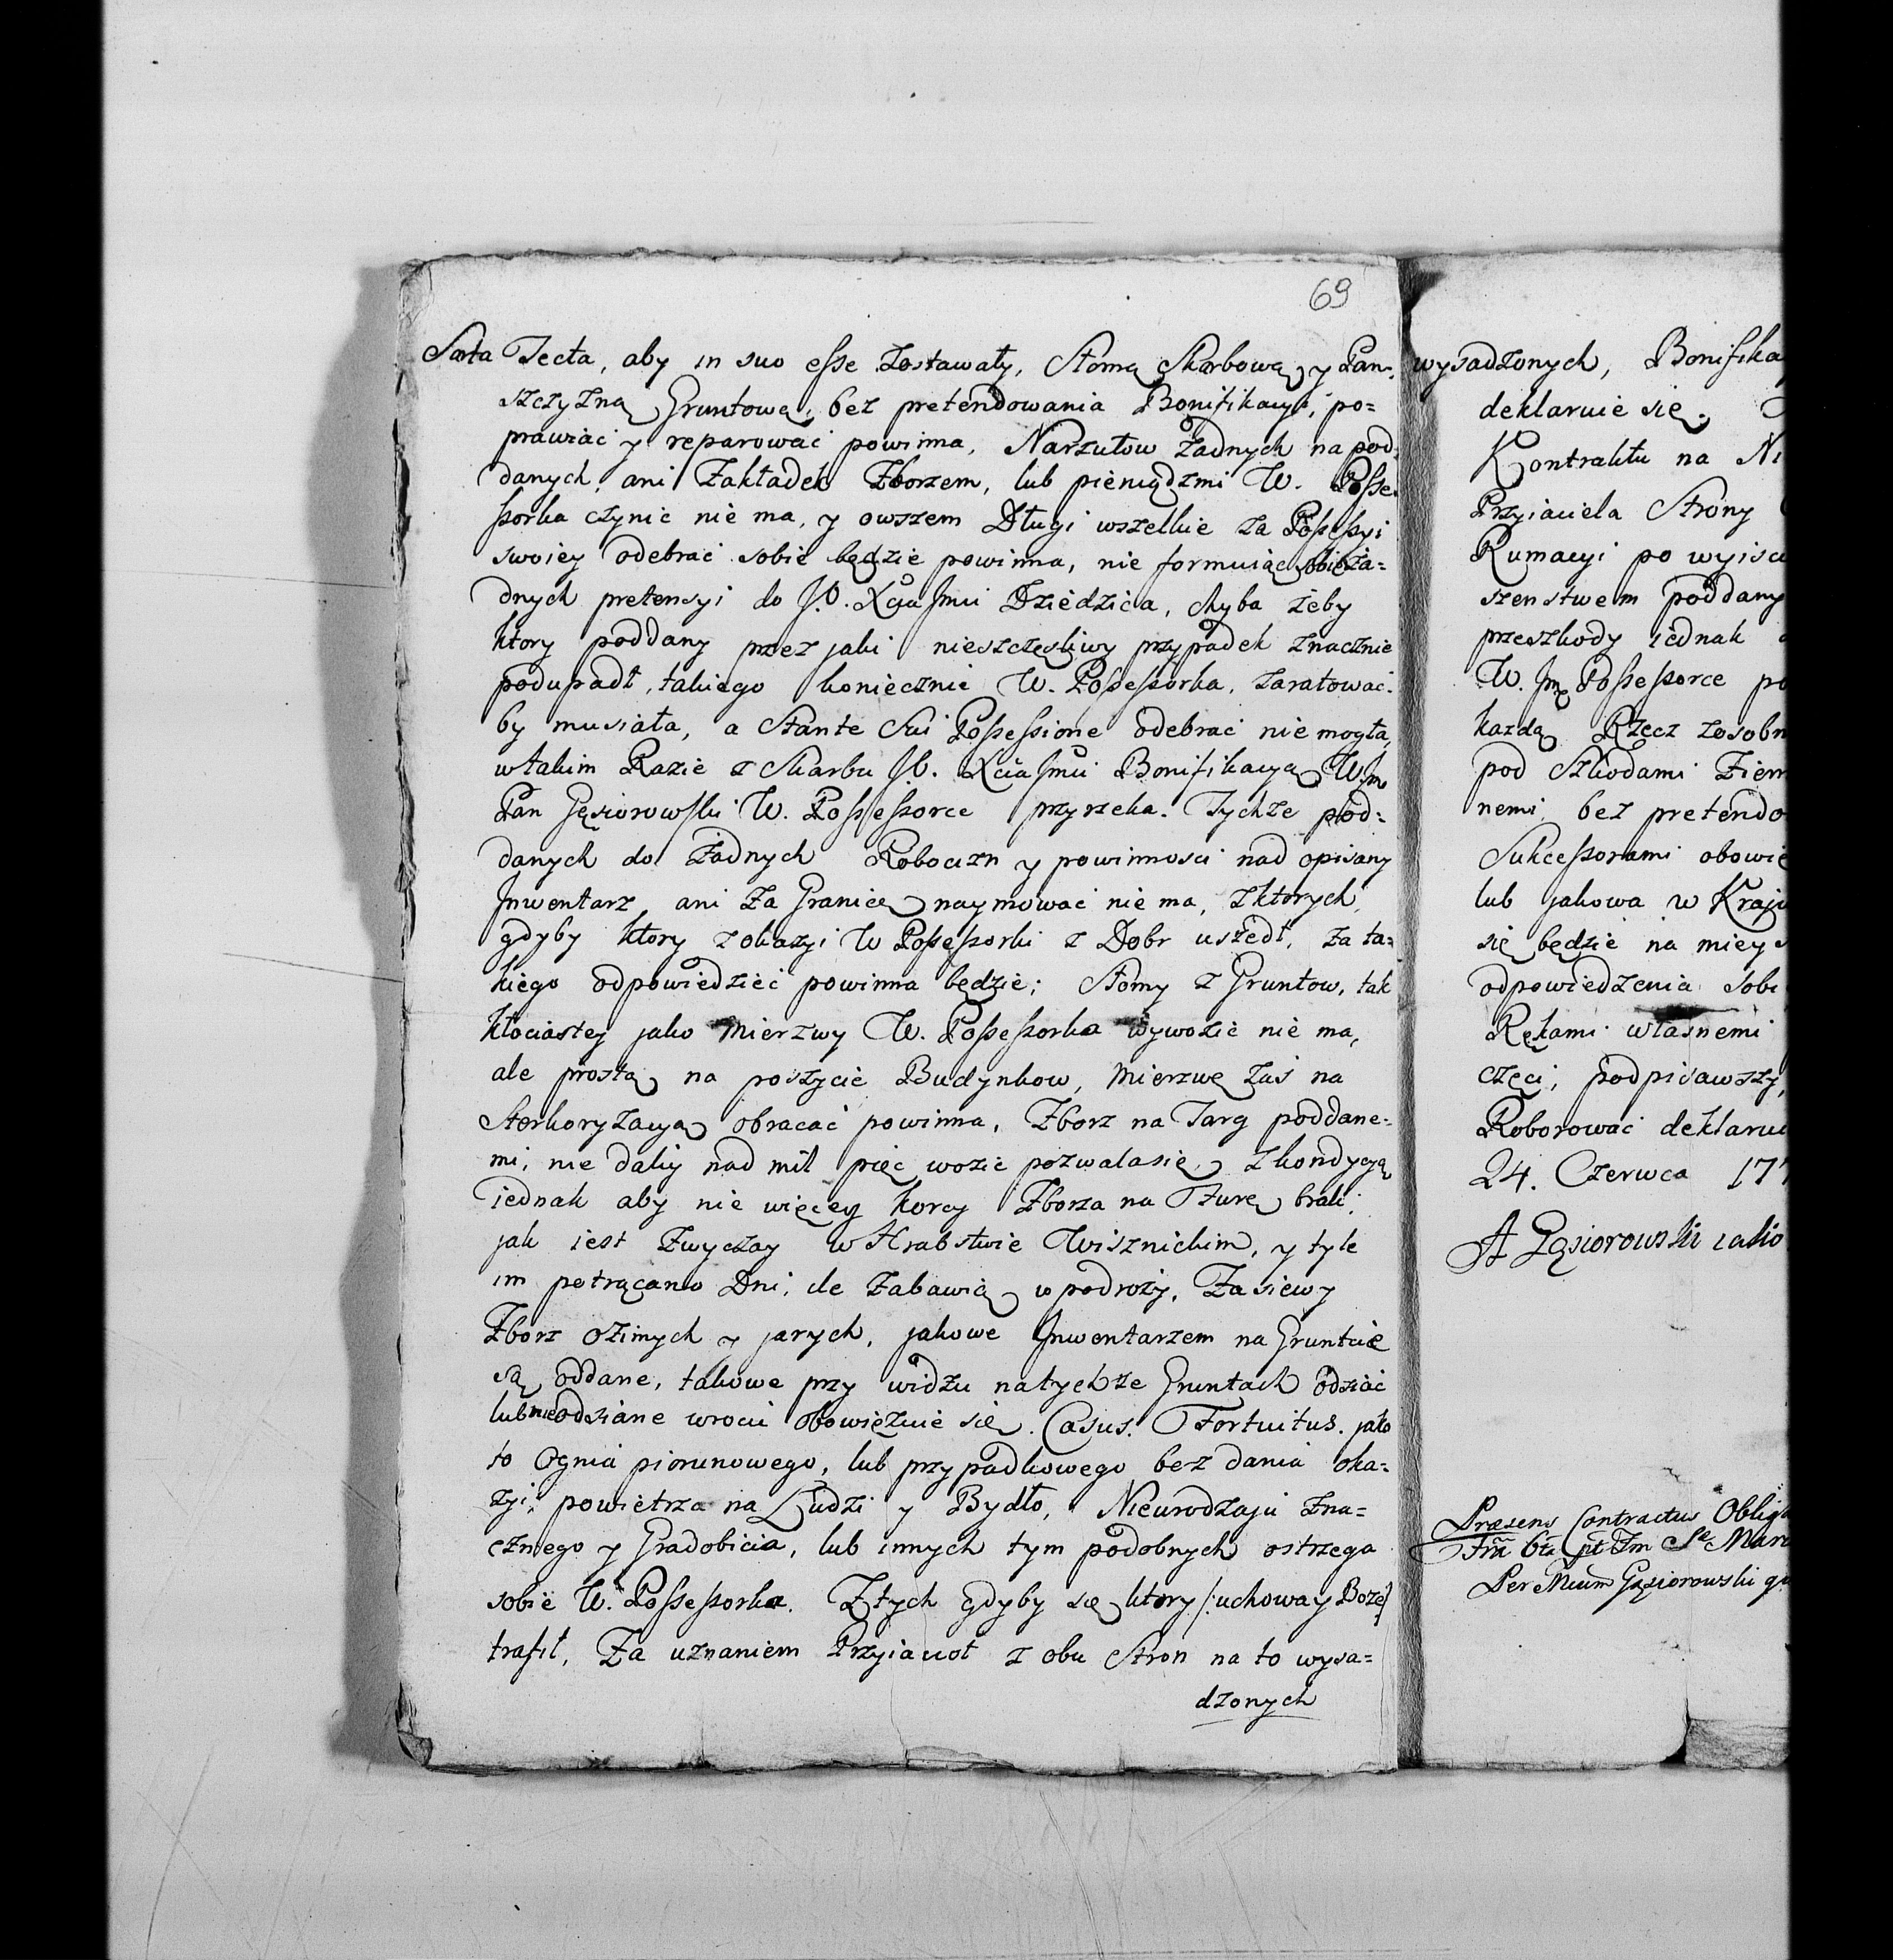 69
Sarta Tecta, aby in suo esse zostawały, Słomą Skarbową y Pan-
szczyzną Gruntową, bez pretendowania Bonifikacyi, po=
prawiać y reparować powinna, Narzutow żadnych na pod=
danych, ani Zakładek Zborzem, lub pieniądzmi W. Posse-
ssorka czynic nie ma, y owszem Długi wszelkie za Possessyi
swoiey odebrać sobie będzie powinna, nie formuiąc sobie ża=
dnych pretensyi do J.O. Xcia Jmci Dziedzica, chyba żeby
ktory poddany przez jaki nieszczęsliwy przypadek znacznie
podupadł, takiego koniecznie W. Possessorka, zaratować
by musiała, a Stante Sui Possessione odebrać nie mogła,
w takim Razie z Skarbu J.O. Xcia Jmci Bonifikacyą W. Jm
Pan Gąsiorowski W. Possessorce przyrzeka. Tychże pod=
danych do żadnych Roboczn y powinnosci nad opisany
Jnwentarz, ani za Granicę naymować nie ma, z ktorych
gdyby ktory z okazyi W Possessorki z Dobr uszedł, za ta=
kiego odpowiedzieć powinna będzie; Słomy z Gruntow, tak
kłociastey jako Mierzwy W. Possessorka wywozic nie ma,
ale prostą na poszycie Budynkow, Mierzwę zaś na
Sterkoryzacyą obracać powinna, Zborz na Targ poddane=
mi, nie daliy nad mil pięć wozic pozwala się, z kondycyą
iednak aby nie więcey korcy Zborza na Furę brali,
jak iest Zwyczay w Hrabstwie Wisznickim, y tyle
im potrącano Dni, ile zabawią w podroży, Zasiewy
Zborz ozimych y jarych, jakowe Jnwentarzem na Gruntcie
są oddane, takowe przy widzu na tychże Gruntach odsiać
lub nieodsiane wrocic obowięzuie się. Casus. Fortuitus. jako
to Ognia piorunowego, lub przypadkowego bez dania oka=
zyi, powietrza na Ludzi y Bydło, Nieurodzaju zna=
cznego y Gradobicia, lub innych tym podobnych ostrzega
sobie W. Possessorka. Z tych gdyby się ktory /:uchoway Boże/
trafił, Za uznaniem Przyiacioł z obu Stron na to wysa=
dzonych
wysadzonych, Bonifika
deklaruie się.
Kontraktu na Ni
Przyiaciela Strony
Rumacyi po wyisc
szenstwem poddany
przeszkody iednak
W. Jmę Possessorce po
każdą Rzecz zosobn
pod Szkodami Ziem
nemi, bez pretendo
Sukcessorami obowię
lub jakowa w Kraju
się będzie na miey
odpowiedzenia sobi
Rękami własnemi
częci, podpisawszy,
Roborować deklarui
24. Czerwca 177
A Gąsiorowski iako
Præsens Contractus Oblig
Per Gąsiorowski